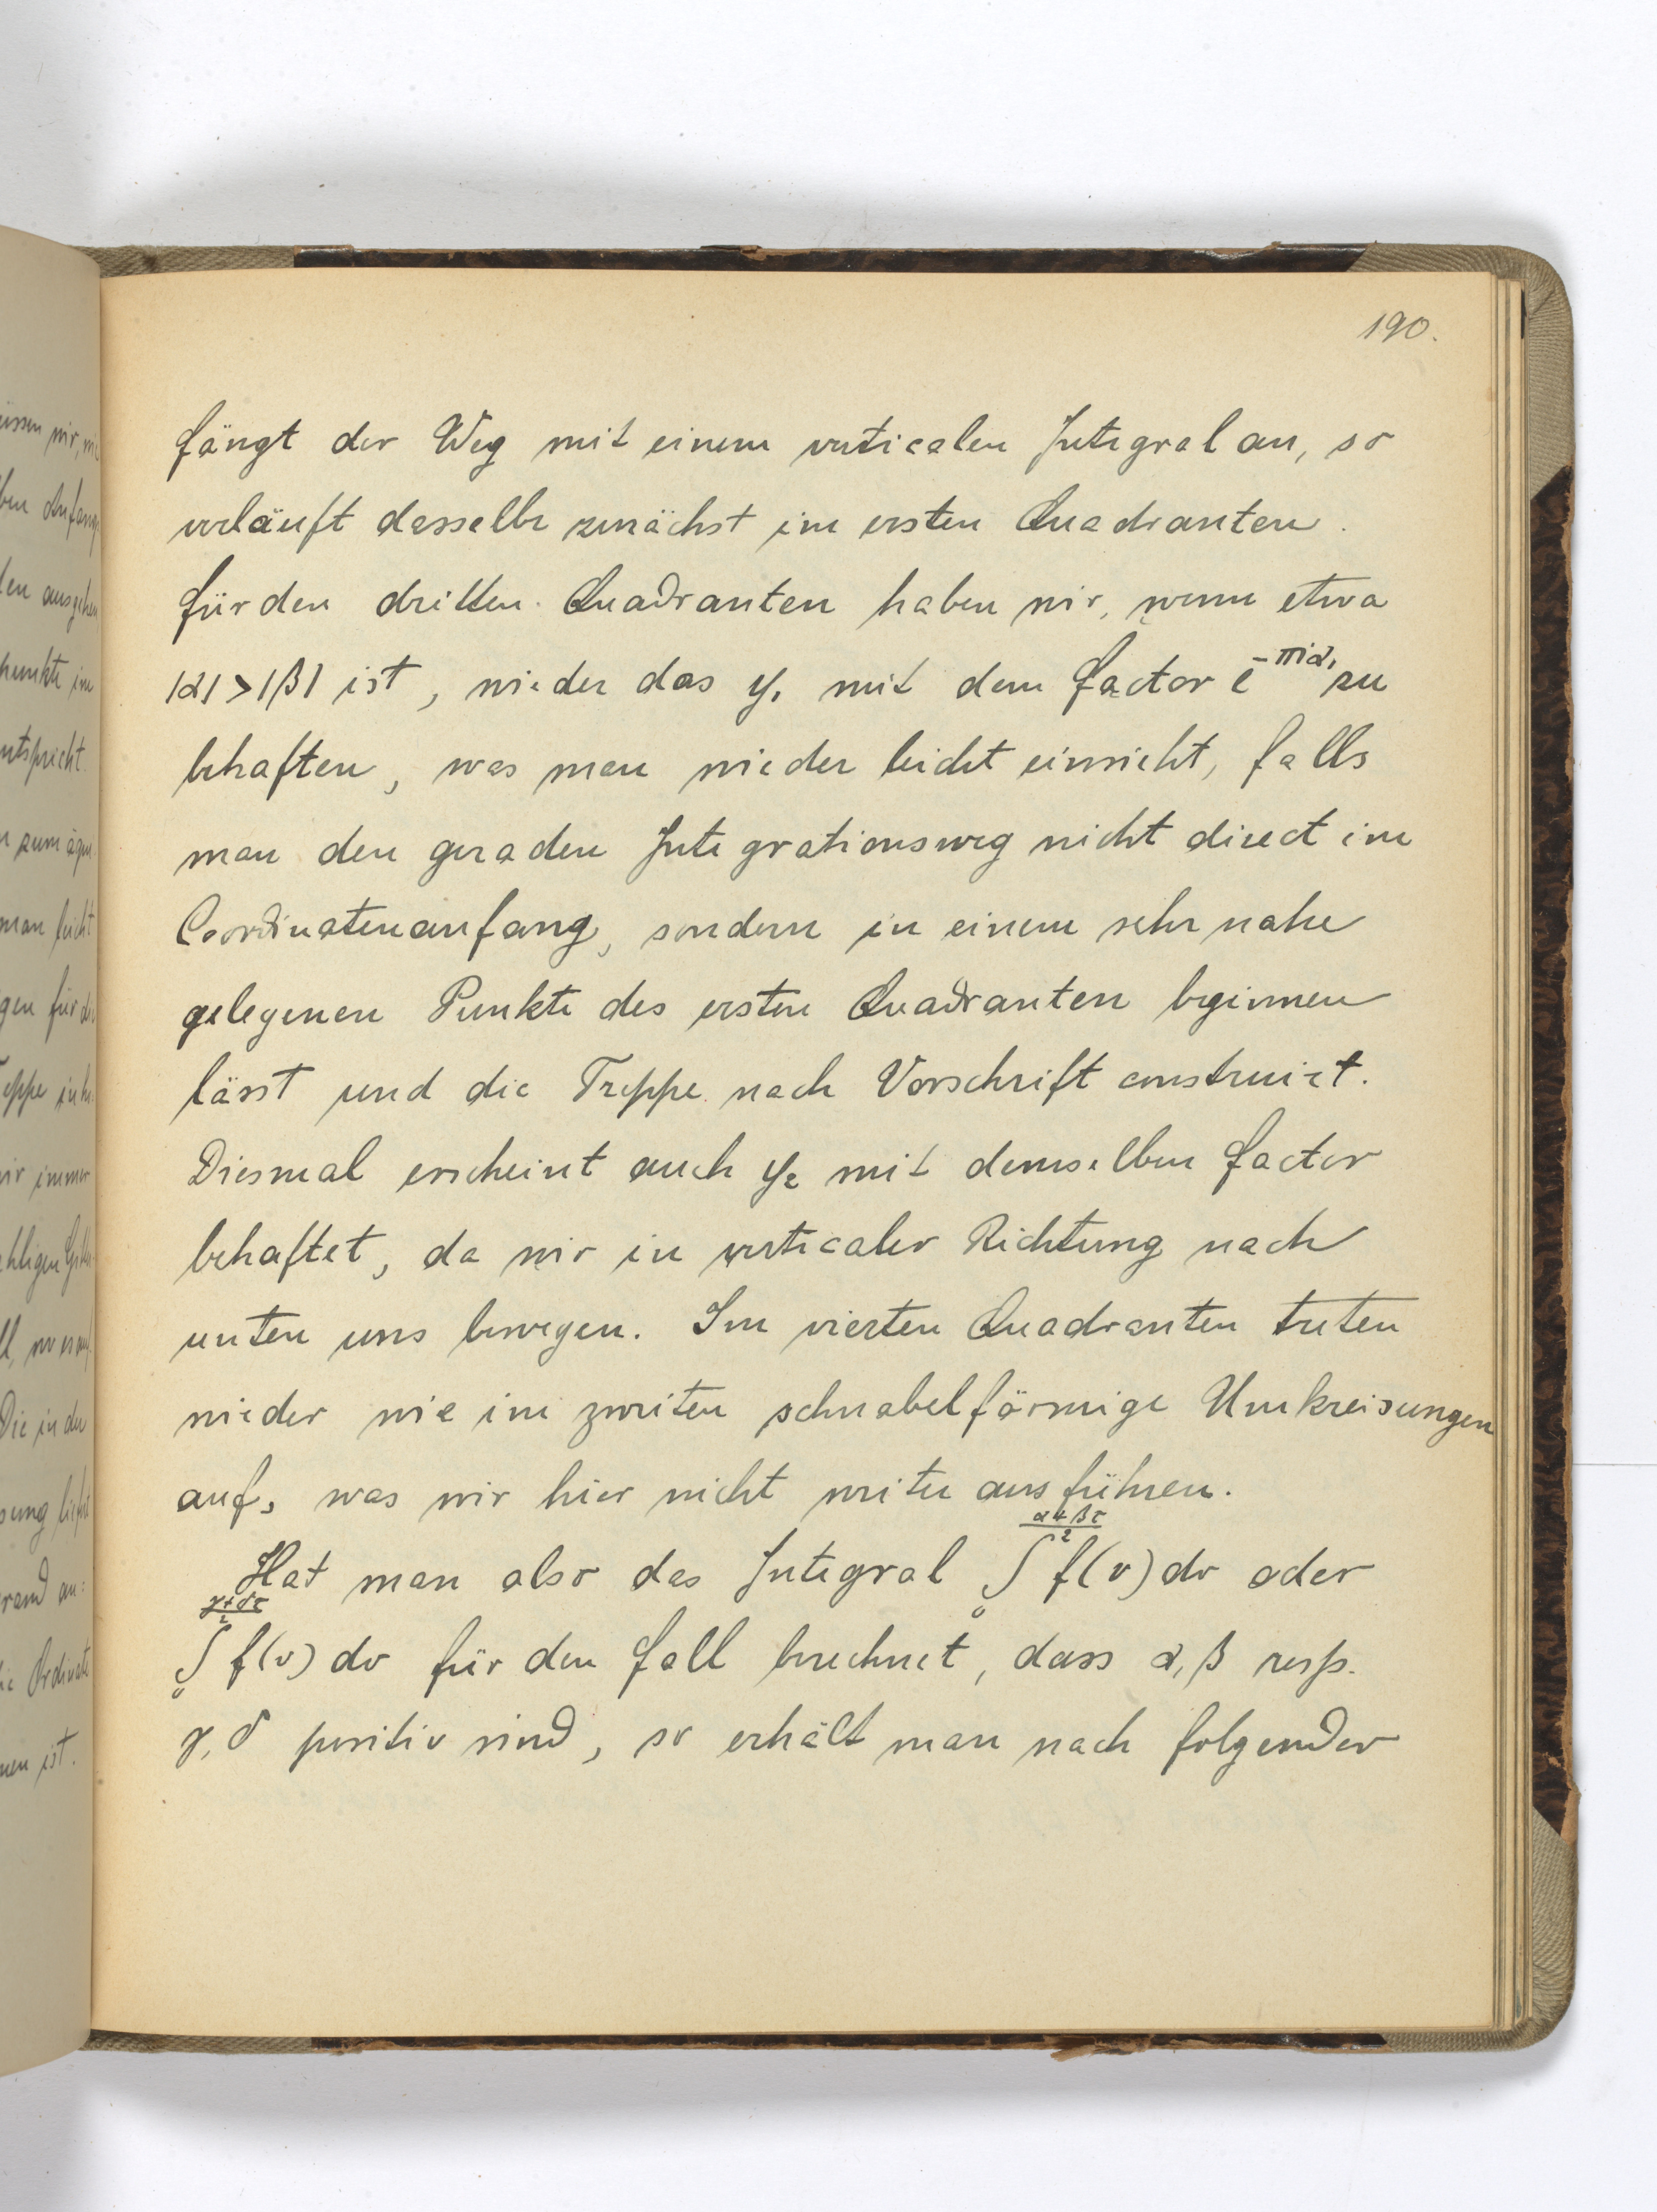 190.
fängt der Weg mit einem verticalen Integral an, so
verläuft dasselbe zunächst im ersten Quadranten.
Für den dritten Quadranten haben wir, wenn etwa
|α| > |β| ist, wieder das y₁ mit dem Factor e^{-πiα₁} zu
behaften, was man wieder leicht einsieht, falls
man den geraden Integrationsweg nicht direct im
Coordinatenanfang, sondern in einem sehr nahe
gelegenen Punkte des ersten Quadranten beginnen
lässt und die Treppe nach Vorschrift construirt.
Diesmal erscheint auch y₂ mit demselben Factor
behaftet, da wir in verticaler Richtung nach
unten uns bewegen. Im vierten Quadranten treten
wieder wie im zweiten schnabelförmige Umkreisungen
auf, was wir hier nicht weiter ausführen.
Hat man also das Integral ∫₀^{(α+βτ)/2} f(v) dv oder
∫₀^{(γ+δτ)/2} f(v) dv für den Fall berechnet, dass α, β resp.
γ, δ positiv sind, so erhält man nach folgender